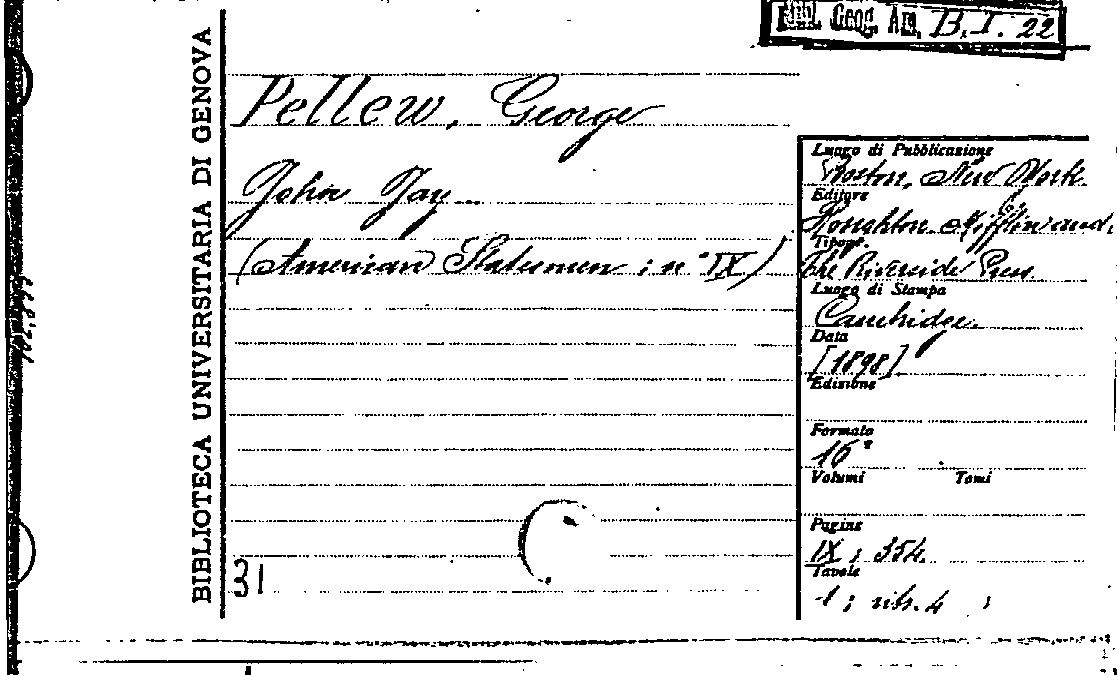 Bibl. Geog. Am. B.I. 22
BIBLIOTECA UNIVERSITARIA DI GENOVA
Pellew, George
John Jay
(American Statesmen ; n° IX)
31
Luogo di Pubblicazione
Boston, New York
Editore
Houghton Mifflin and
Tipogr.
The Riverside Press
Luogo di Stampa
Cambridge
Data
[1898]
Edizione
Formato
16°
Volumi Tomi
Pagine
IX ; 354
Tavole
1 ; ritr. 4 ;